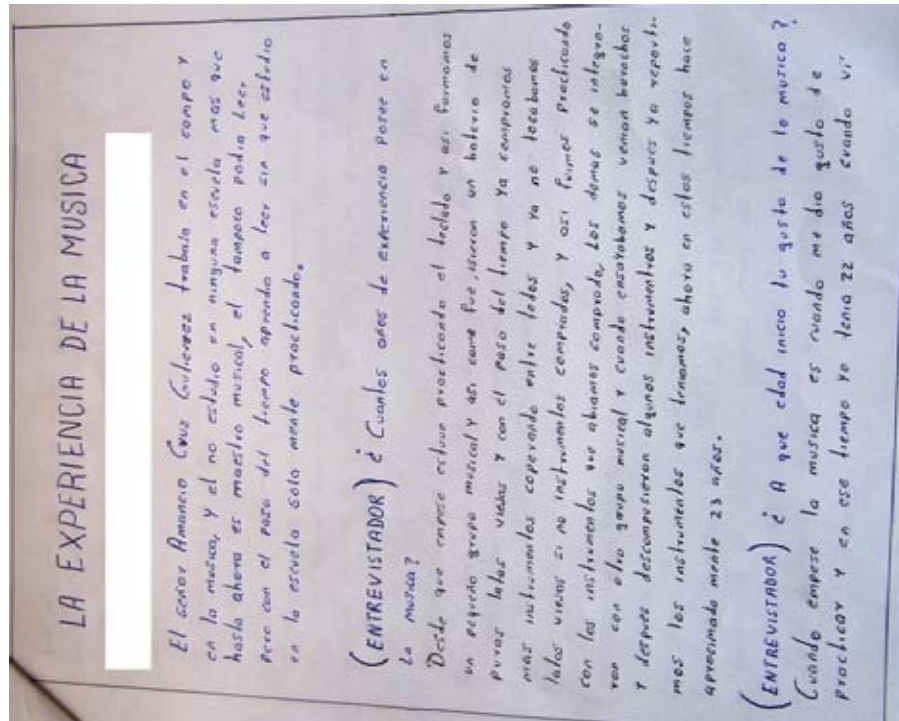 LA EXPERIENCIA DE LA MUSICA
El señor Amancio Cruz Gutierrez trabaja en el campo y
en la musica, y el no estudio en ninguna escuela mas que
hasta ahora es maestro musical, el tampoco podia leer
pero con el paso del tiempo aprendio a leer sin que estudio
en la escuela solo mente practicando.
(ENTREVISTADOR) ¿Cuantos años de experiencia posee en
la musica?
Desde que empese estuve practicando el teclado y asi formamos
un pequeño grupo musical y asi como fue, isieron un bateria de
puras latas viejas y con el paso del tiempo ya compramos
mas instrumentos coperando entre todos y ya no tocabamos
latas viejas si no instrumentos comprados, y asi fuimos practicando
con los instrumentos que abiamos comprado, Los demas se integra-
ron con otro grupo musical y cuando ensayabamos venian borachos
y despues descompusieron algunos instrumentos y despues ya reparti-
mos los instrumentos que teniamos, ahora en estos tiempos hace
aprocimada mente 23 años.
(ENTREVISTADOR) ¿A que edad inicio tu gusto de la musica?
Cuando empese la musica es cuando me dio gusto de
practicar y en ese tiempo yo tenia 22 años cuando vi